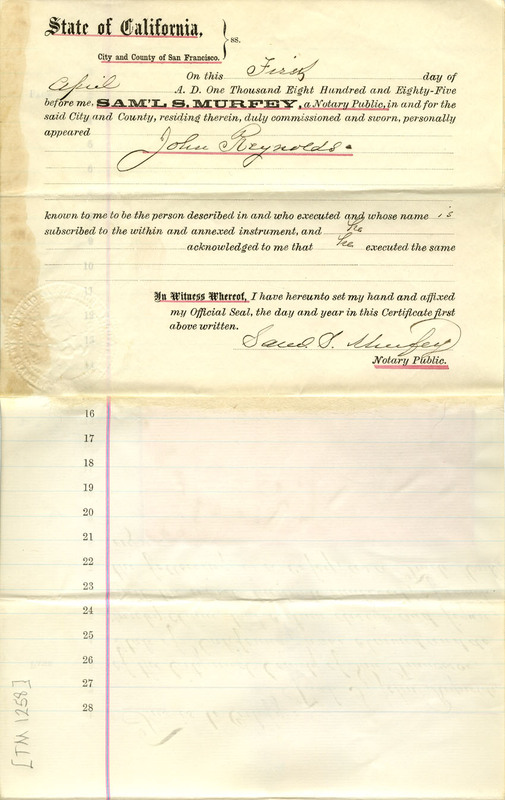 State of California,
City and County of San Francisco. } ss.
On this First day of
April A. D. One Thousand Eight Hundred and Eighty-Five
before me, SAM'L S. MURFEY, a Notary Public, in and for the
said City and County, residing therein, duly commissioned and sworn, personally
appeared
John Reynolds
known to me to be the person described in and who executed and whose name is
subscribed to the within and annexed instrument, and he
acknowledged to me that he executed the same
In Witness Whereof, I have hereunto set my hand and affixed
my Official Seal, the day and year in this Certificate first
above written.
Saml. S. Murfey
Notary Public.
16
17
18
19
20
21
22
23
24
25
26
27
28
[TM 1258]